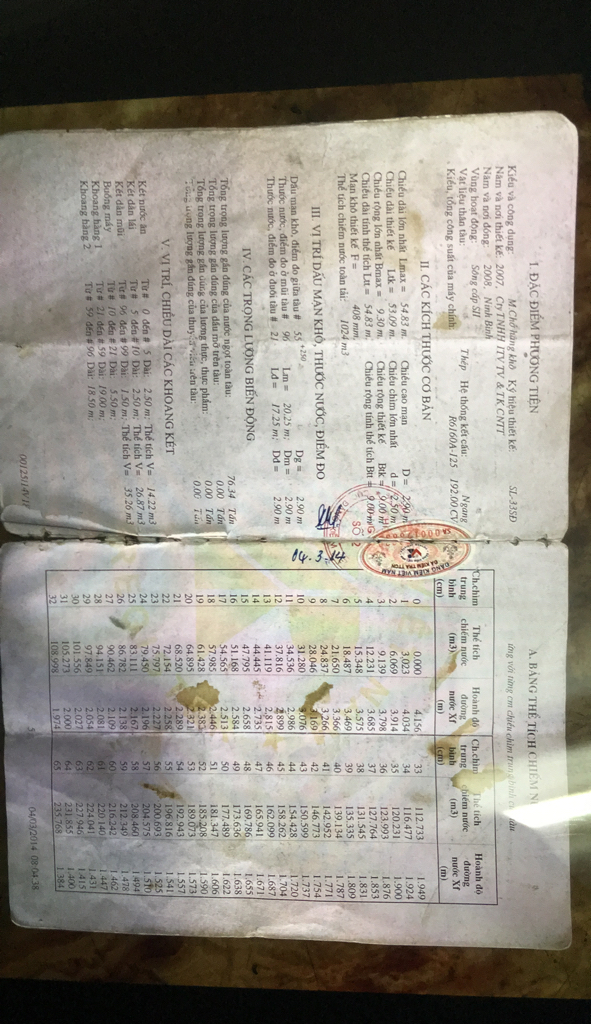 1. ĐẶC ĐIỂM PHƯƠNG TIỆN
Kiểu và công dụng: M.Chở hàng khô Ký hiệu thiết kế: SL-33SĐ
Năm và nơi thiết kế: 2007, Cty TNHH ITVTV & TK CNTT
Năm và nơi đóng: 2008, Ninh Bình
Vùng hoạt động: Sông cấp SII
Vật liệu thân tàu: Thép Hệ thống kết cấu: Ngang
Kiểu, tổng công suất của máy chính: R6160A-125 192.00 CV
II. CÁC KÍCH THƯỚC CƠ BẢN
Chiều dài lớn nhất Lmax = 54.83 m. Chiều cao mạn D =
Chiều dài thiết kế Ltk = 53.09 m. Chiều chìm lớn nhất d = 2.50 m
Chiều rộng lớn nhất Bmax = 9.30 m. Chiều rộng thiết kế Btk = 9.00 m
Chiều dài tính thể tích Ltt = 54.83 m. Chiều rộng tính thể tích Btt = 9.00 m
Mạn khô thiết kế F = 408 mm.
Thể tích chiếm nước toàn tải: 1024 m3
III VỊ TRÍ DẤU MẠN KHÔ, THƯỚC NƯỚC, ĐIỂM ĐO
Dấu mạn khô, điểm đo giữa tàu # 55 +250 Dg = 2.90 m
Thước nước, điểm đo ở mũi tàu # 96 Lm = 20.25 m; Dm = 2.90 m
Thước nước, điểm đo ở đuôi tàu # 21 Lđ = 17.25 m; Dđ = 2.90 m
IV. CÁC TRỌNG LƯỢNG BIẾN ĐỘNG
Tổng trọng lượng gần đúng của nước ngọt toàn tàu: 76.34 Tấn
Tổng trọng lượng gần đúng của dầu mỡ trên tàu: 0.00 Tấn
Tổng trọng lượng gần đúng của lương thực, thực phẩm: 0.00 Tấn
Tổng trọng lượng gần đúng của thuyền viên trên tàu: 0.00 Tấn
V. VỊ TRÍ, CHIỀU DÀI CÁC KHOANG KÉT
Két nước ăn Từ # 0 đến # 5 Dài: 2.50 m; Thể tích V= 14.22 m3
Két dằn lái Từ # 5 đến # 10 Dài: 2.50 m; Thể tích V= 26.87 m3
Két dằn mũi Từ # 96 đến # 99 Dài: 1.50 m; Thể tích V= 35.26 m3
Buồng máy Từ # 10 đến # 21 Dài: 5.50 m;
Khoang hàng 1 Từ # 21 đến # 59 Dài: 19.00 m;
Khoang hàng 2 Từ # 59 đến # 96 Dài: 18.50 m;
00125/14V17
ĐĂNG KIỂM VIỆT NAM
ĐÃ KIỂM TRA TTCH
SỐ 2
04.3.14
A. BẢNG THỂ TÍCH CHIẾM
ứng với từng cm chiều chìm trung bình của tàu
Ch.chìm trung bình (cm) Thể tích chiếm nước (m3) Hoành độ đường nước Xf (m) Ch.chìm trung bình (cm) Thể tích chiếm nước (m3) Hoành độ đường nước Xf (m)
0 0.000 4.156 33 112.733 1.949
1 3.023 4.034 34 116.477 1.924
2 6.069 3.914 35 120.231 1.900
3 9.139 3.798 36 123.993 1.876
4 12.231 3.685 37 127.764 1.853
5 15.348 3.575 38 131.545 1.831
6 18.487 3.469 39 135.335 1.809
7 21.650 3.366 40 139.134 1.787
8 24.837 3.266 41 142.952 1.771
9 28.046 3.169 42 146.773 1.754
10 31.280 3.076 43 150.599 1.737
11 34.536 2.986 44 154.428 1.720
12 37.816 2.899 45 158.262 1.704
13 41.119 2.815 46 162.099 1.687
14 44.445 2.735 47 165.941 1.671
15 47.795 2.658 48 169.786 1.655
16 51.168 2.584 49 173.636 1.638
17 54.565 2.513 50 177.489 1.622
18 57.985 2.446 51 181.347 1.606
19 61.428 2.382 52 185.208 1.590
20 64.895 2.321 53 189.073 1.573
21 68.520 2.289 54 192.943 1.557
22 72.154 2.258 55 196.816 1.541
23 75.797 2.227 56 200.693 1.525
24 79.450 2.196 57 204.575 1.510
25 83.111 2.167 58 208.460 1.494
26 86.782 2.138 59 212.349 1.478
27 90.462 2.109 60 216.242 1.462
28 94.151 2.081 61 220.140 1.447
29 97.849 2.054 62 224.041 1.431
30 101.556 2.027 63 227.946 1.415
31 105.273 2.000 64 231.855 1.400
32 108.998 1.974 65 235.768 1.384
04/03/2014 08:04:38